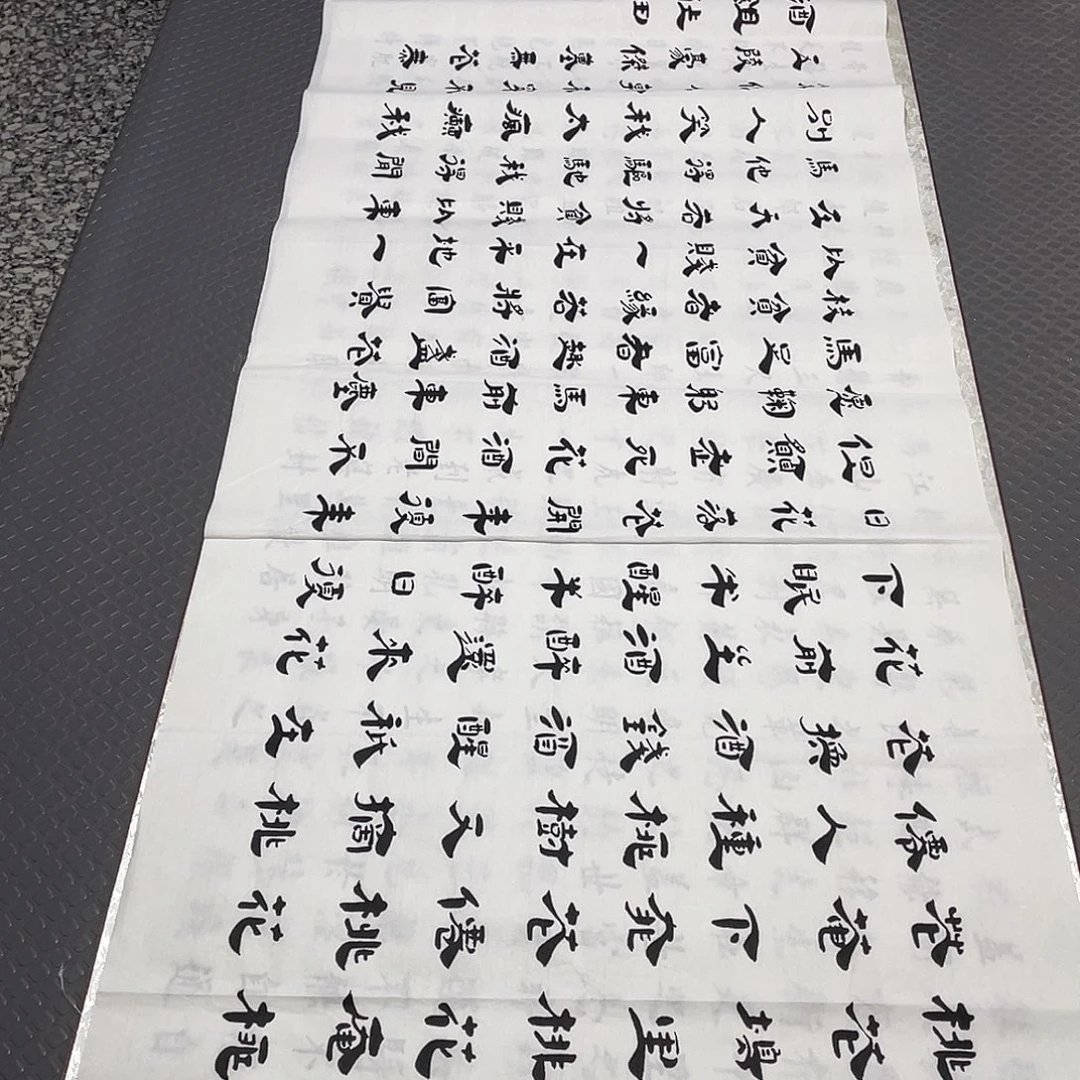 桃花塢里桃花庵桃
花庵下桃花僊桃花
僊人種桃樹又摘桃
花換酒錢酒醒祇在
花前坐酒醉還來花
下眠半醒半醉日復
日花落花開年復年
但願老死花酒間不
願鞠躬車馬前車塵
馬足富者趣酒盞花
枝貧者緣若將富貴
比貧賤一在平地一
在天若將貧賤比車
馬他得驅馳我得閒
別人笑我太瘋癲我